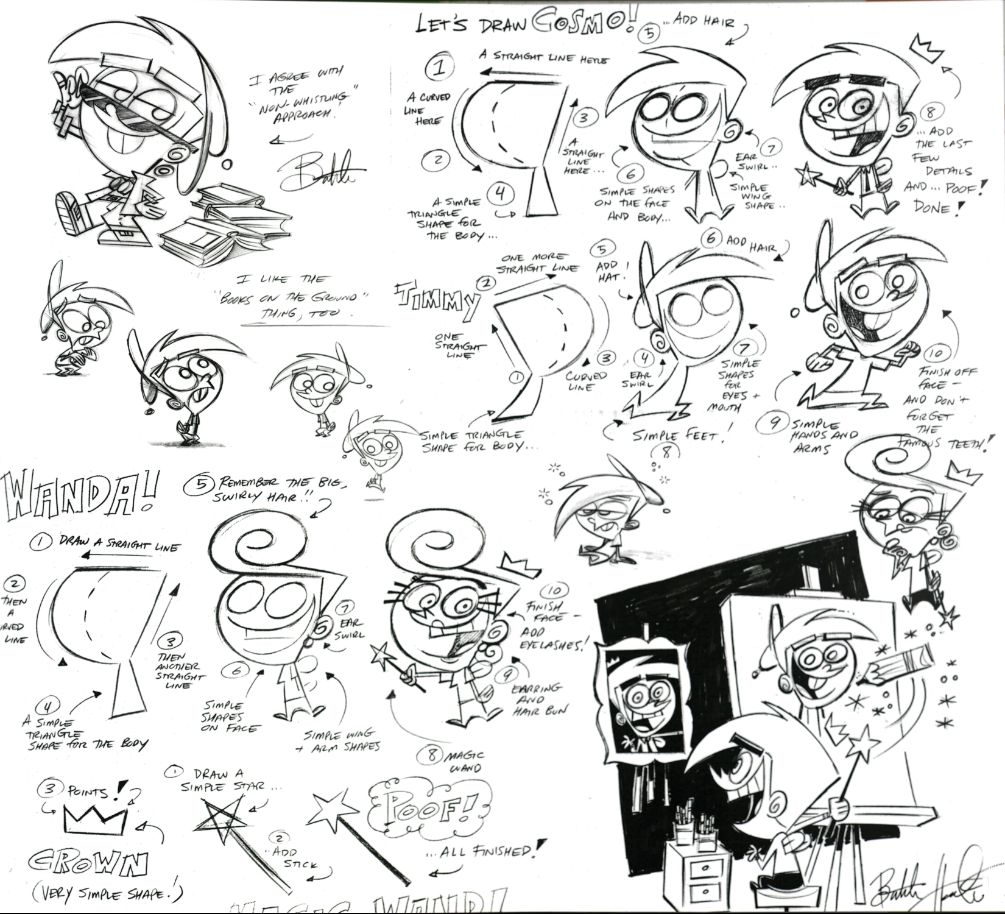 I AGREE WITH
THE
"NON-WHISTLING"
APPROACH.
I LIKE THE
"BOOKS ON THE GROUND"
THING, TOO.
LET'S DRAW COSMO!
1
A STRAIGHT LINE HERE
A CURVED
LINE
HERE
2
3
A
STRAIGHT
LINE
HERE...
4
A SIMPLE
TRIANGLE
SHAPE FOR
THE BODY...
5 ...ADD HAIR
6
SIMPLE SHAPES
ON THE FACE
AND BODY...
7
EAR
SWIRL..
SIMPLE
WING
SHAPE...
8
...ADD
THE LAST
FEW
DETAILS
AND... POOF!
DONE!
TIMMY
ONE MORE
STRAIGHT LINE
2
ONE
STRAIGHT
LINE
1
3
CURVED
LINE
SIMPLE TRIANGLE
SHAPE FOR BODY...
5
ADD
HAT!
6 ADD HAIR
4
EAR
SWIRL
7
SIMPLE
SHAPES
FOR
EYES +
MOUTH
SIMPLE FEET!
8
9 SIMPLE
HANDS AND
ARMS
10
FINISH OFF
FACE -
AND DON'T
FORGET
THE
FAMOUS TEETH!
WANDA!
1 DRAW A STRAIGHT LINE
2
THEN
A
RVED
LINE
3
THEN
ANOTHER
STRAIGHT
LINE
4
A SIMPLE
TRIANGLE
SHAPE FOR THE BODY
5 REMEMBER THE BIG,
SWIRLY HAIR!!
6
SIMPLE
SHAPES
ON FACE
7
EAR
SWIRL
SIMPLE WING
+ ARM SHAPES
8 MAGIC
WAND
9
EARRING
AND
HAIR BUN
10
FINISH
FACE -
ADD
EYELASHES!
3 POINTS!
CROWN
(VERY SIMPLE SHAPE!)
1 DRAW A
SIMPLE STAR...
2
..ADD
STICK
POOF!
...ALL FINISHED!
MAGIC WAND!